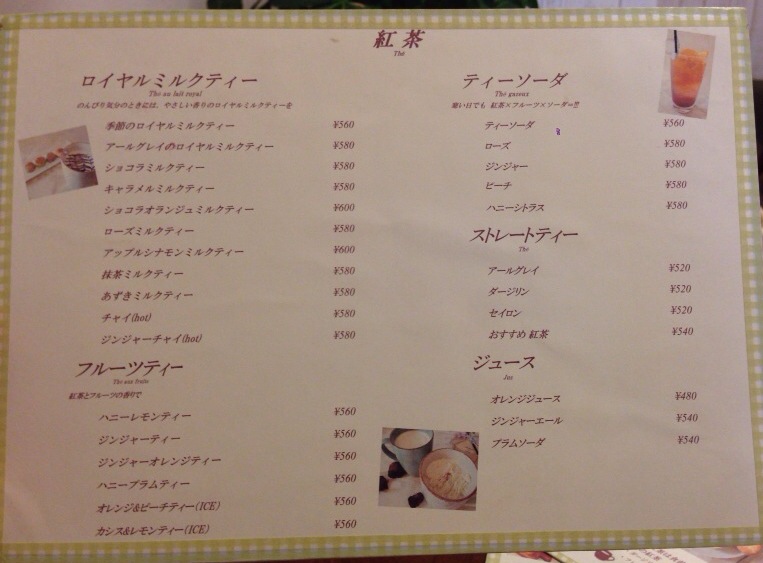 紅茶
Thé
ロイヤルミルクティー
Thé au lait royal
のんびり気分のときには、やさしい香りのロイヤルミルクティーを
季節のロイヤルミルクティー ¥560
アールグレイのロイヤルミルクティー ¥580
ショコラミルクティー ¥580
キャラメルミルクティー ¥580
ショコラオランジュミルクティー ¥600
ローズミルクティー ¥580
アップルシナモンミルクティー ¥600
抹茶ミルクティー ¥580
あずきミルクティー ¥580
チャイ(hot) ¥580
ジンジャーチャイ(hot) ¥580
フルーツティー
Thé aux fruits
紅茶とフルーツの香りで
ハニーレモンティー ¥560
ジンジャーティー ¥560
ジンジャーオレンジティー ¥560
ハニープラムティー ¥560
オレンジ&ピーチティー(ICE) ¥560
カシス&レモンティー(ICE) ¥560
ティーソーダ
Thé gazeux
暑い日でも 紅茶×フルーツ×ソーダ=!!!
ティーソーダ ¥560
ローズ ¥580
ジンジャー ¥580
ピーチ ¥580
ハニーシトラス ¥580
ストレートティー
Thé
アールグレイ ¥520
ダージリン ¥520
セイロン ¥520
おすすめ 紅茶 ¥540
ジュース
Jus
オレンジジュース ¥480
ジンジャーエール ¥540
プラムソーダ ¥540